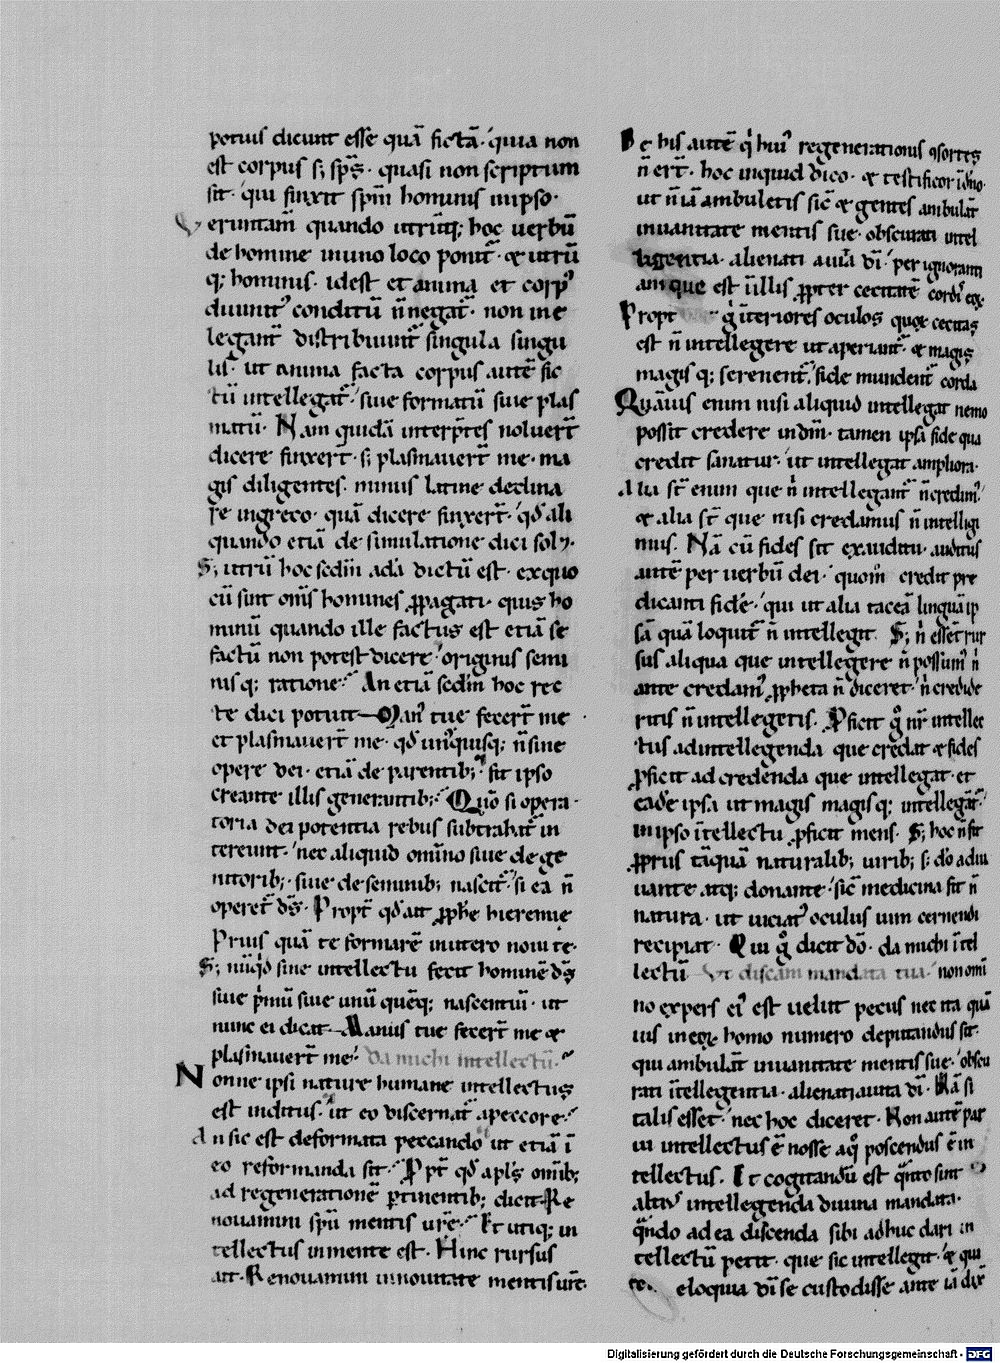 potius dicunt esse quā fictā. quia non
est corpus s; sp̄s. quasi non scriptum
sit. qui finxit sp̄m hominis inipso.
Veruntam̄ quando utrūq; hoc uerbū
de homine inuno loco ponit̄. & utrū
q; hominis. idest et anima et corp᾽
diuinit᾽ conditū n̄ negat̄. non ine
legant̄ distribuunt̄ singula singu
lis. ut anima facta corpus autē fic
tū intellegat̄. siue formatū siue plas
matū. Nam quidā interp̄tes noluer̄t
dicere finxer̄t. s; plasmauer̄t me. ma
gis diligentes. minus latine declina
re ingreco. quā dicere finxer̄t. qđ ali
quando etiā de simulatione dici sol&.
S; utrū hoc scdm̄ adā dictū est. exquo
cū sint om̄s homines ꝓpagati. quis ho
minū quando ille factus est etiā se
factū non potest dicere. originis semi
nisq; ratione. An etiā scdm̄ hoc rec
te dici potuit Man᾽ tue fecer̄t me
et plasmauer̄t me. qđ un᾽quisq; n̄ sine
opere dei. etiā de parentib; fit ipso
creante illis generantib; Quō si opera
toria dei potentia rebus subtrahat̄ in
tereunt. nec aliquid omīno siue de ge
nitorib; siue de seminib; nascit̄. si ea n̄
operet̄ d̄s. Propt̄ qđ ait ꝓph̄e hieremie
Prius quā te formarē inutero noui te.
S; nūqđ sine intellectu fecit hominē d̄s
siue p̄mū siue unū quēq; nascentiū. ut
nunc ei dicat Manus tue fecer̄t me &
plasmauer̄t me. Da michi intellectū.
Nonne ipsi nature humane intellectus
est inditus. ut eo discernat̄ apeccore.
An sic est deformata peccando ut etiā ī
eo reformanda sit. Ppt̄ qđ apl̄s omīb;
ad regenerationē ꝑtinentib; dicit Re
nouamini spū mentis ur̄e. Et utiq; in
tellectus inmente est. Hinc rursus
ait. Renouamini innouitate mentis ur̄e.
De his autē q̇ hui᾽ regenerationis ꝯsortes
n̄ er̄t. hoc inquid dico. & testificor
ut n̄ iā ambuletis sic̄ & gentes ambulāt
inuanitate mentis sue. obscurati intel
ligentia. alienati auia dī. per ignoranti
am que est īillis ꝓpter cecitatē cordis
Propt g̊ īteriores oculos quoꝝ cecitas
est n̄ intellegere ut aperiant̄. & magis
magisq; serenent̄. fide mundent̄ corda
Quāuis enim nisi aliquid intellegat nemo
possit credere indm̄. tamen ipsa fide qua
credit sanatur. ut intellegat ampliora.
Alia st̄ enim que n̄ intellegant̄ n̄ credim᾽
& alia st̄ que nisi credamus n̄ intelligi
mus. Nā cū fides sit exauditu. auditus
autē per uerbū dei. quom̊ credit pre
dicanti fidē. qui ut alia taceā linguā ip
sā quā loquit̄ n̄ intellegit. S; n̄ esset rur
sus aliqua que intellegere n̄ possum᾽ n̄
ante credam᾽ ꝓpheta n̄ diceret. n̄ credide
ritis n̄ intellegetis. Pficit g̊ nr̄ intellec
tus adintellegenda que credat & fides
ꝓficit ad credenda que intellegat. et
eadē ipsa ut magis magisq; intellegat̄.
inipso ītellectu ꝓficit mens. S; hoc n̄ fit
ꝓprus tāquā naturalib; uirib; s; dō adiu
uante atq; donante. sic̄ medicina fit n̄
natura. ut uiciat᾽ oculus uim cernendi
recipiat. Qui g̊ dicit dō. da michi ītel
lectū Vt discam mandata tua. non omī
no expers ei᾽ est uelut pecus nec ita quā
uis homo numero deputandus sit.
qui ambulāt inuanitate mentis sue. obscu
rati ītellegentia. alienati auita dī. Nā si
talis esset. nec hoc diceret. Non autē par
ui intellectus ē nosse aq̊ poscendus ē in
tellectus. Et cogitandū est q̄nto sint
altius intellegenda diuina mandata.
q̄ndo ad ea discenda sibi adhuc dari in
tellectū petit. que sic intellegit. & qui
eloquia dī se custodisse ante iā dix̄
Digitalisierung gefördert durch die Deutsche Forschungsgemeinschaft - DFG